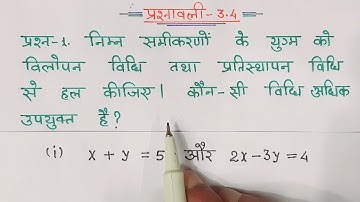 प्रश्नावली-3.4
प्रश्न-1. निम्न समीकरणों के युग्म को
विलोपन विधि तथा प्रतिस्थापन विधि
से हल कीजिए। कौन-सी विधि अधिक
उपयुक्त है?
(i) x + y = 5 और 2x-3y=4